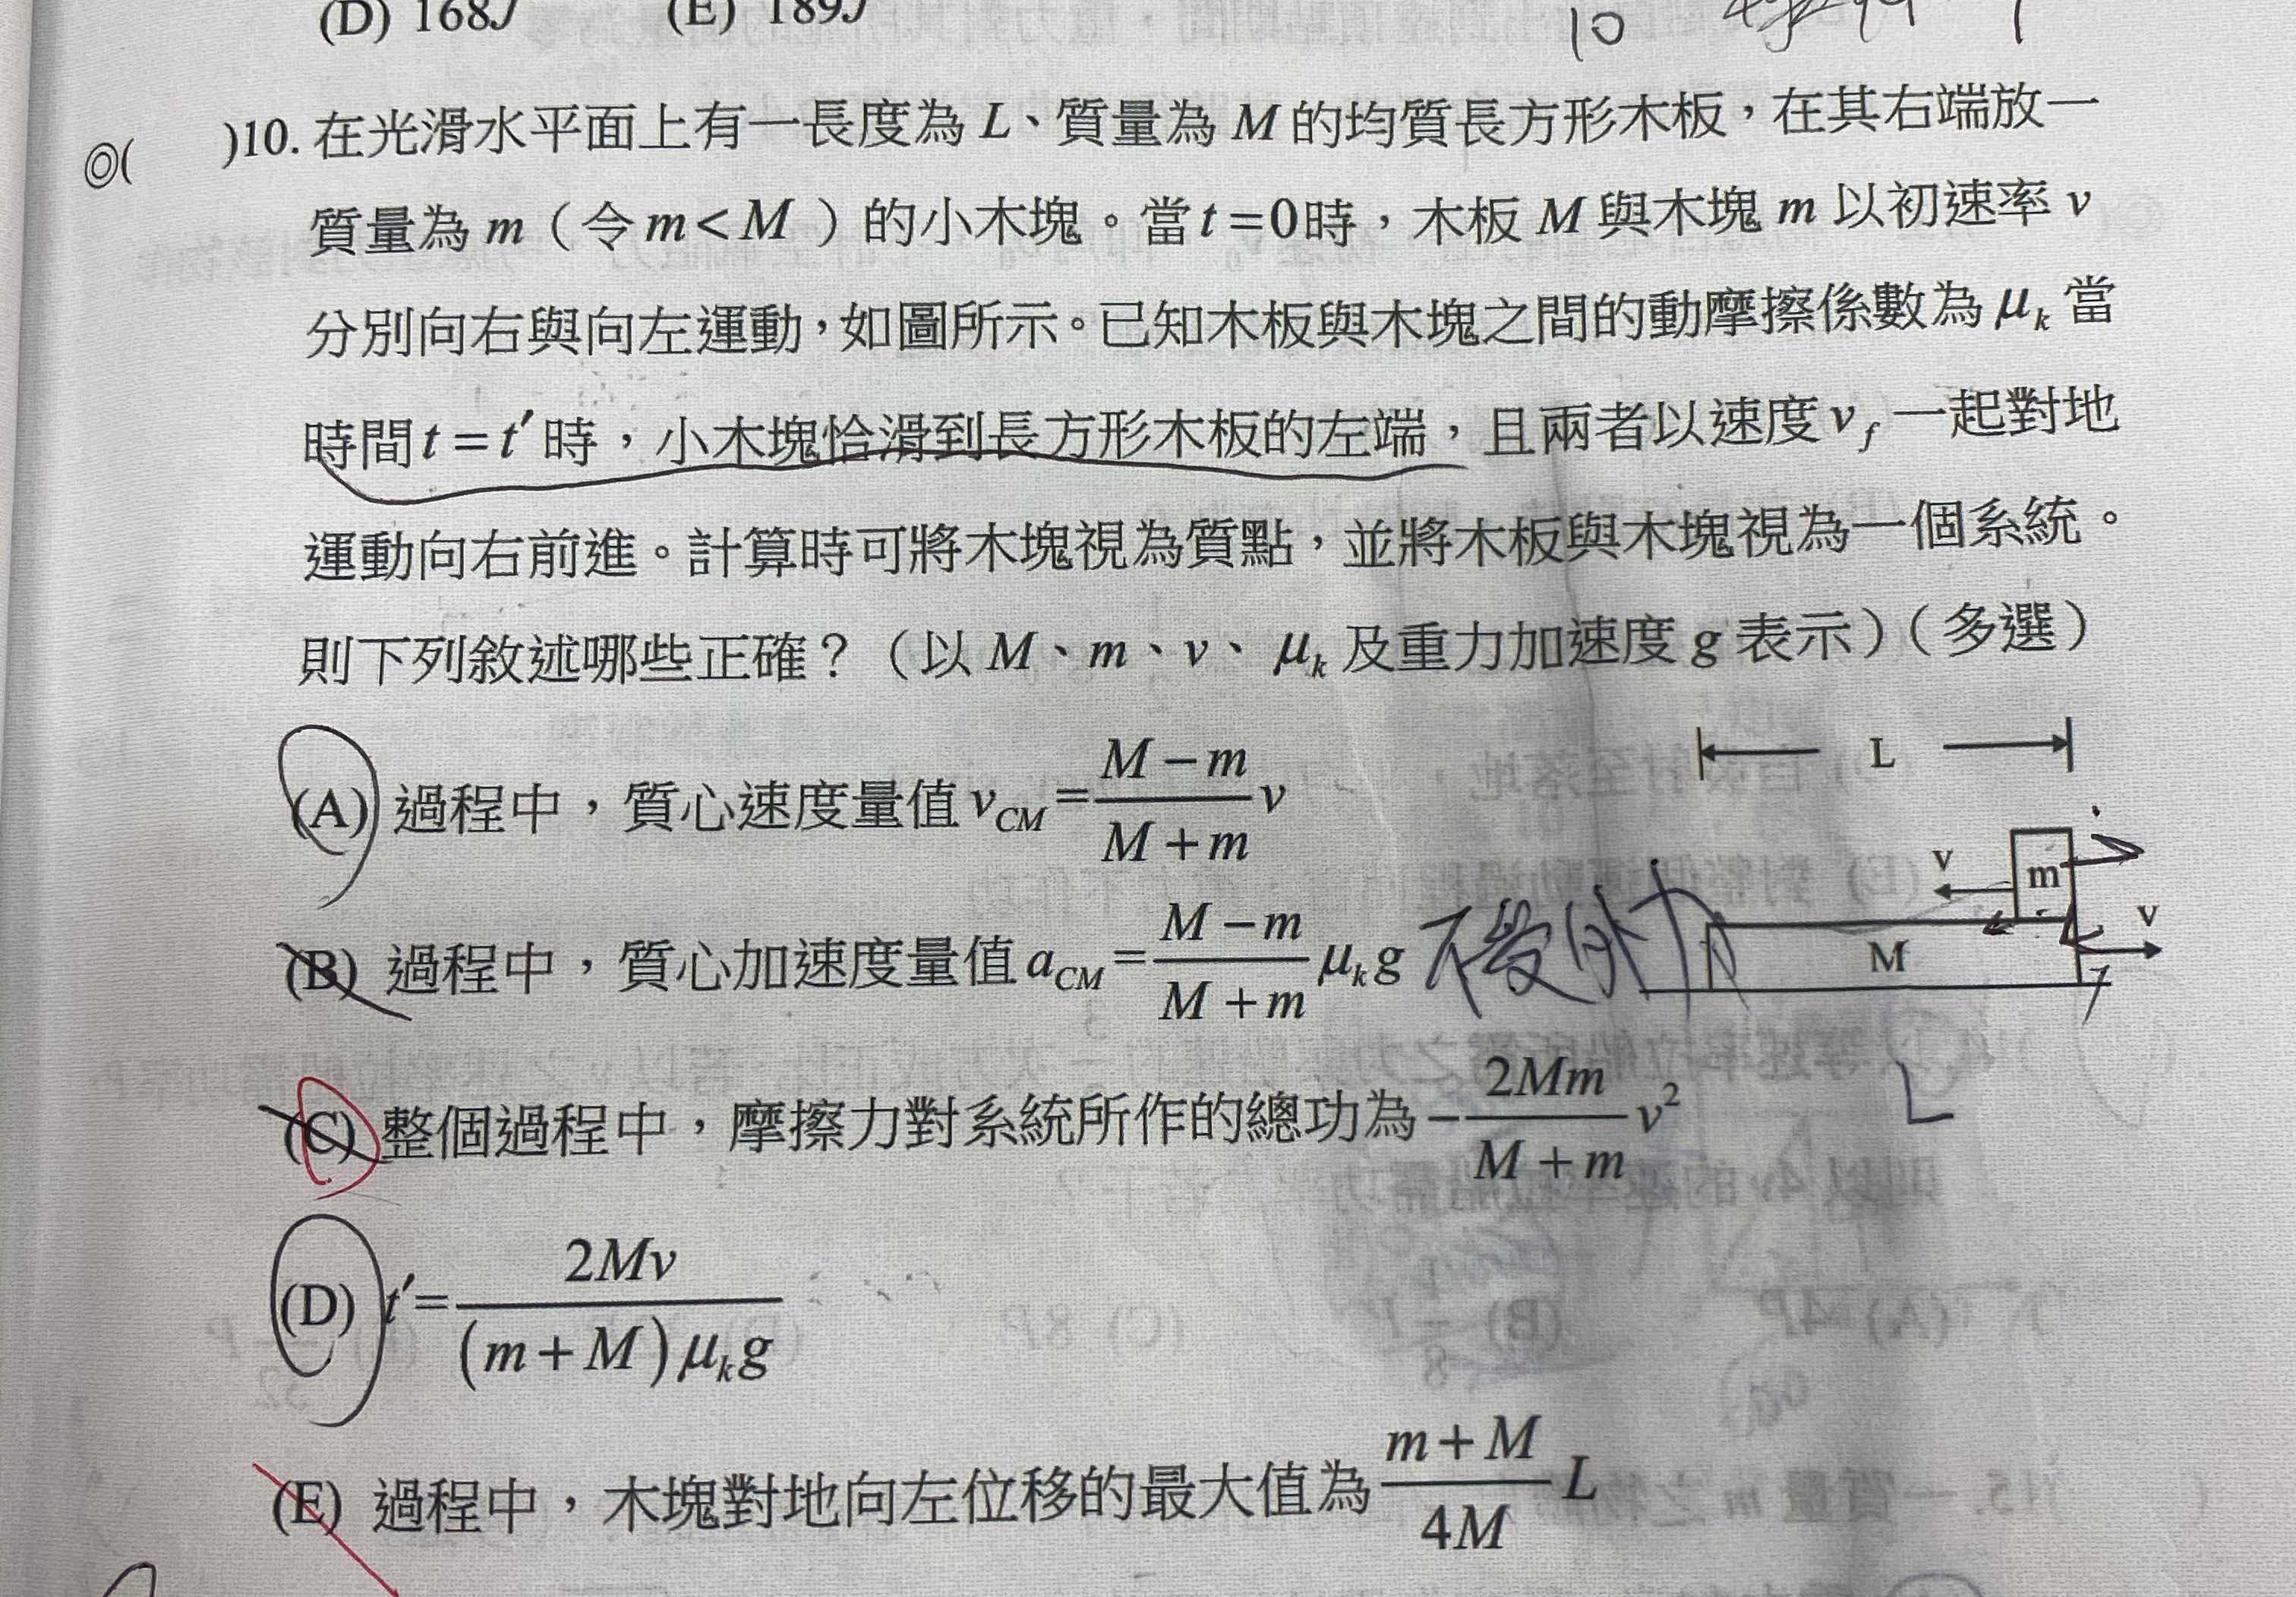 (D) 168J (E) 189J
10
◎( )10. 在光滑水平面上有一長度為 L、質量為 M 的均質長方形木板，在其右端放一
質量為 m（令 m < M ）的小木塊。當 t = 0 時，木板 M 與木塊 m 以初速率 v
分別向右與向左運動，如圖所示。已知木板與木塊之間的動摩擦係數為 μk 當
時間 t = t′ 時，小木塊恰滑到長方形木板的左端，且兩者以速度 vf 一起對地
運動向右前進。計算時可將木塊視為質點，並將木板與木塊視為一個系統。
則下列敘述哪些正確？（以 M、m、v、 μk 及重力加速度 g 表示）（多選）
(A) 過程中，質心速度量值 vCM = (M − m)/(M + m) v
L
v m v
M
(B) 過程中，質心加速度量值 aCM = (M − m)/(M + m) μk g 不受外力
(C) 整個過程中，摩擦力對系統所作的總功為 − 2Mm/(M + m) v²
L
(D) t′ = 2Mv/((m + M) μk g)
(E) 過程中，木塊對地向左位移的最大值為 (m + M)/4M L